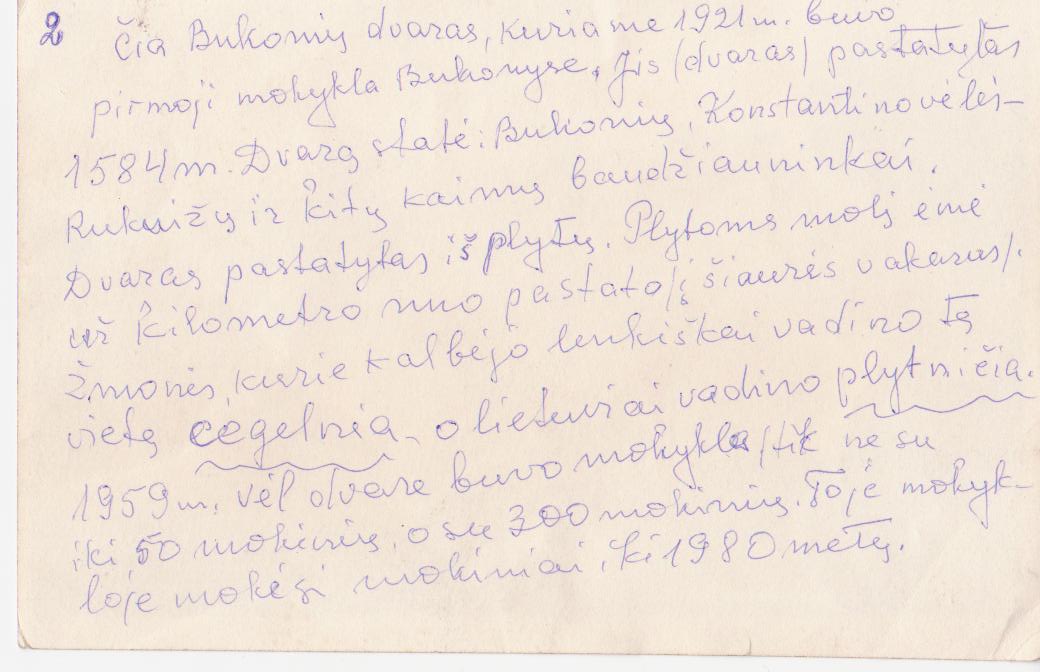 2 Čia Bukonių dvaras, kuriame 1921 m. buvo
pirmoji mokykla Bukonyse. Jis (dvaras) pastatytas
1584 m. Dvarą statė: Bukonių, Konstantinovėlės-
Rukuižų ir kitų kaimų baudžiauninkai.
Dvaras pastatytas iš plytų. Plytoms molį ėmė
už kilometro nuo pastato /į šiaurės vakarus/.
Žmonės, kurie kalbėjo lenkiškai vadino tą
vietą cegelnia, o lietuviai vadino plytničia.
1959 m. vėl dvare buvo mokykla /tik ne su
iki 50 mokinių, o su 300 mokinių. Toje mokyk-
loje mokėsi mokiniai iki 1980 metų.